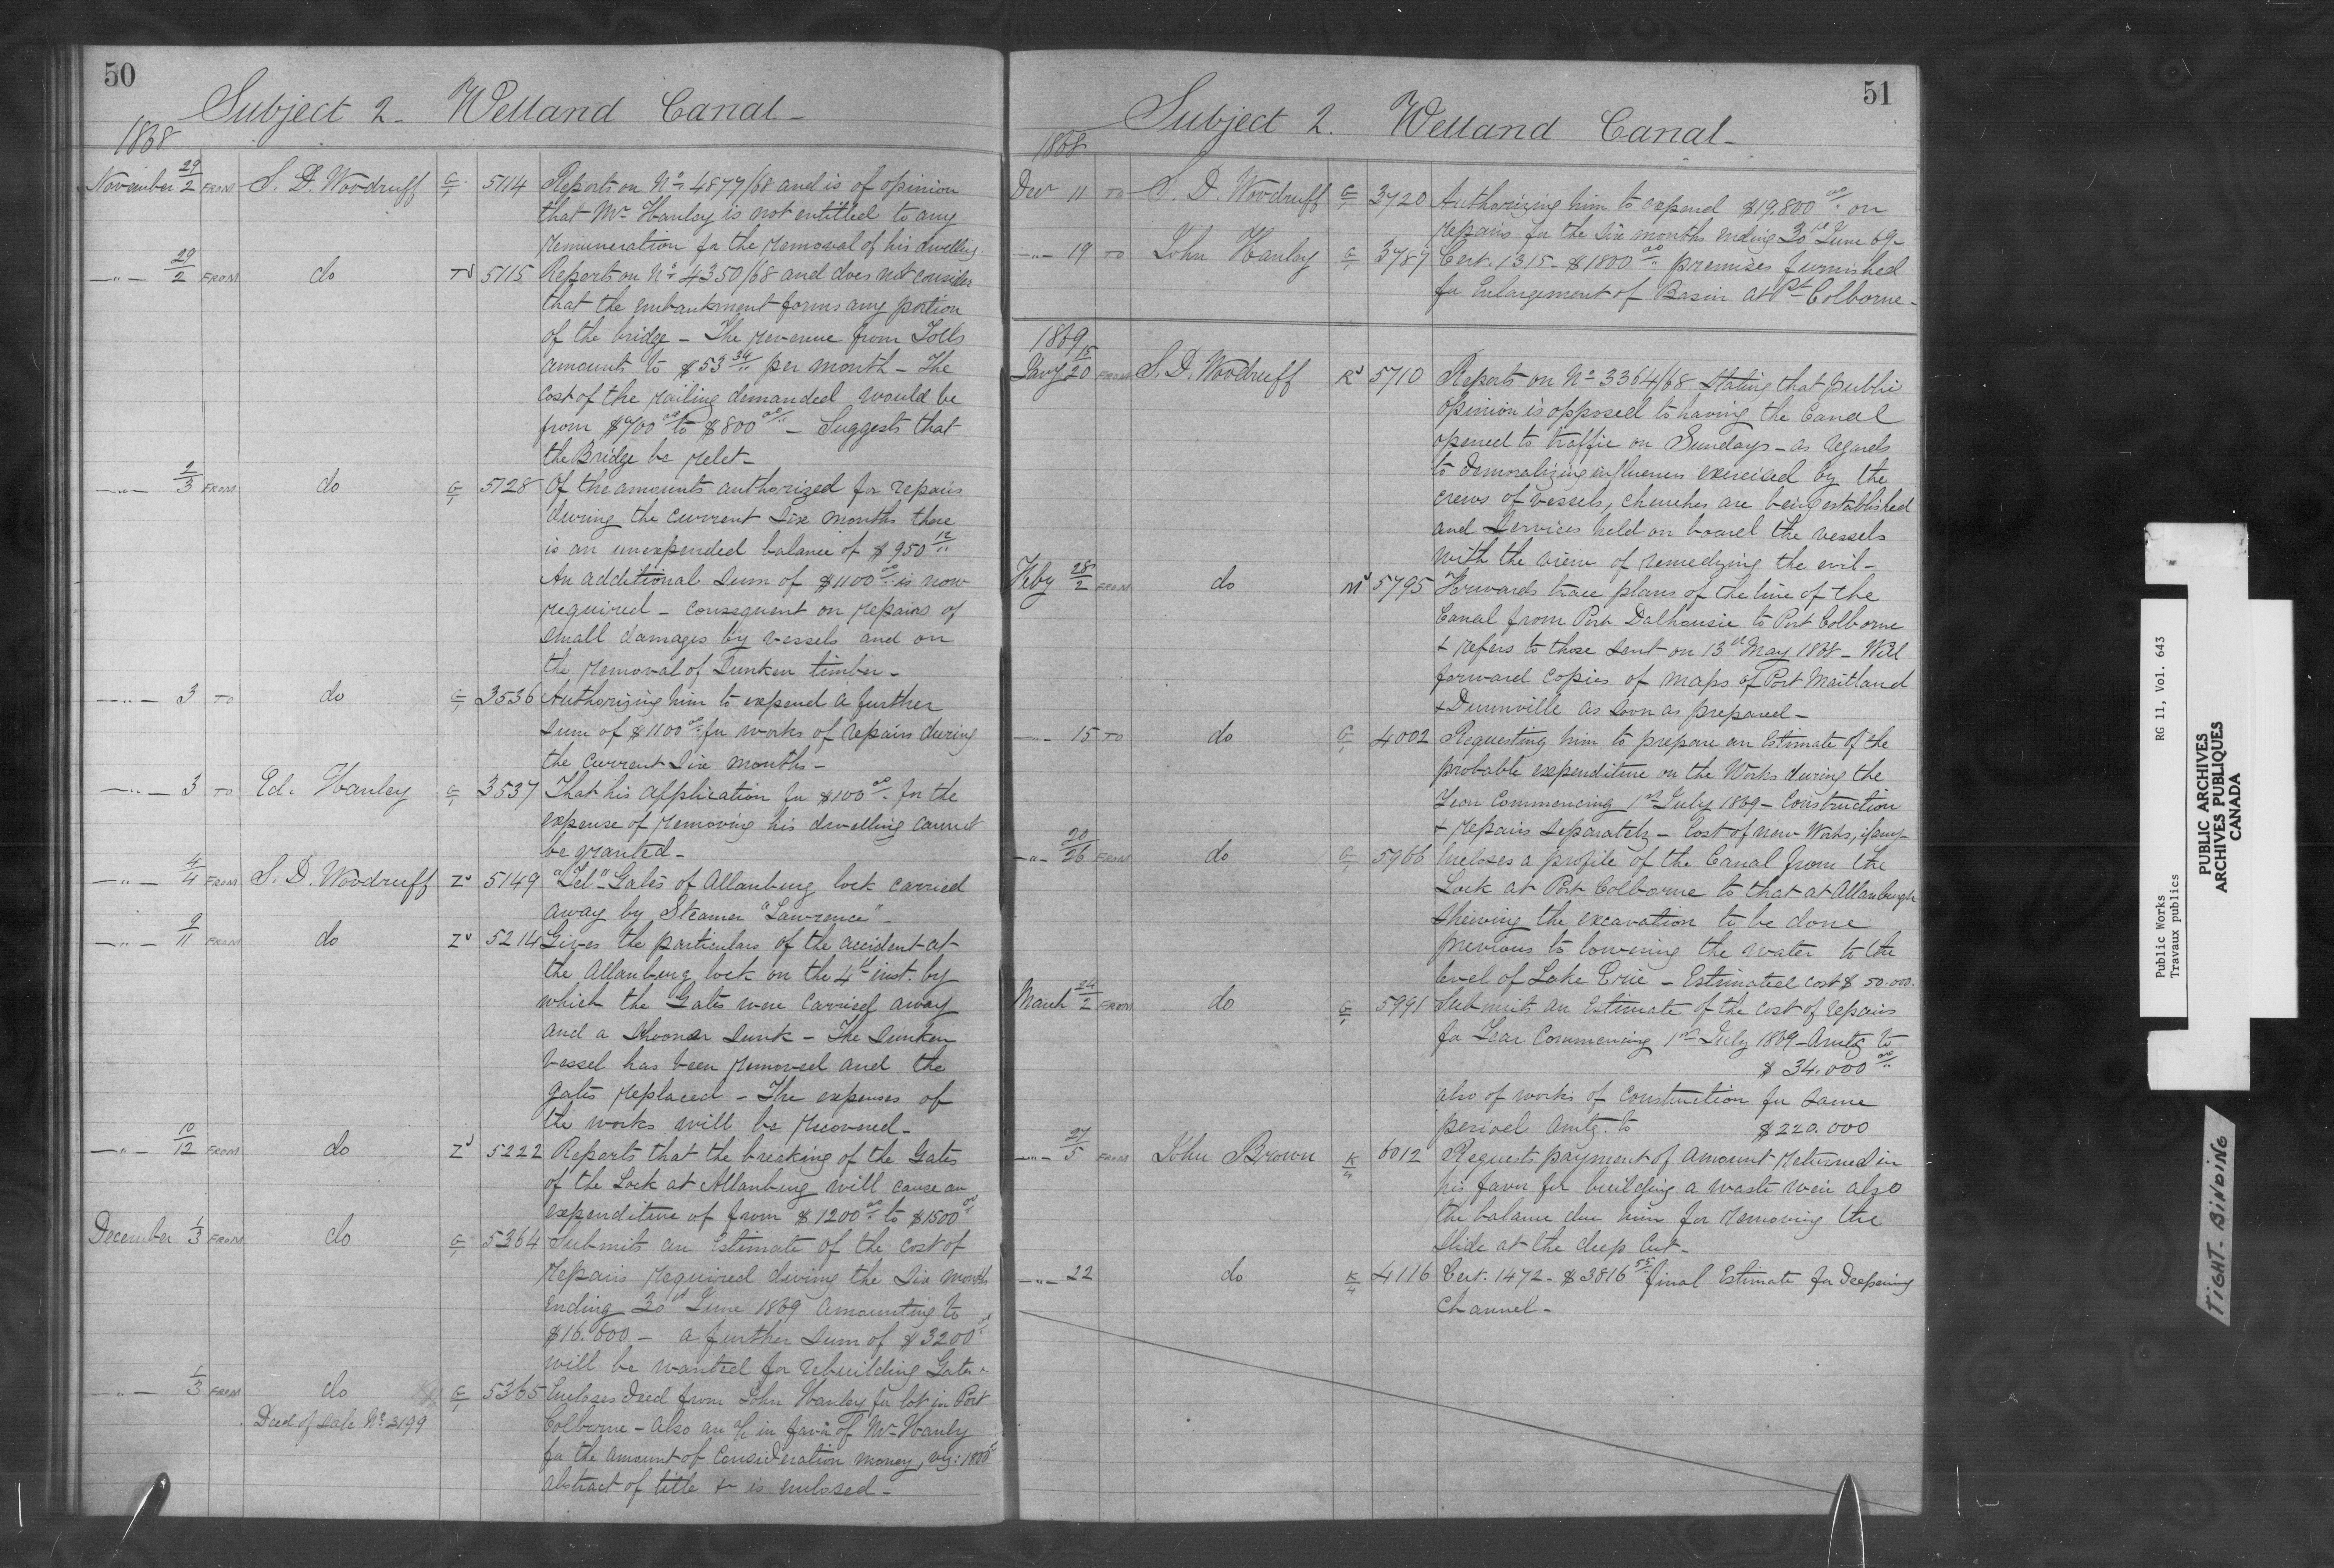 50
Subject 2 - Welland Canal -
1868
November 29/2 FROM S. D. Woodruff G/1 5114 Reports on No 4877/68 and is of opinion
that Mr Hanley is not entitled to any
remuneration for the removal of his dwelling
—"— 29/2 FROM do 5115 Reports on No 4350/68 and does not consider
that the embankment forms any portion
of the bridge - The revenue from Tolls
amounts to $53 34/.. per month - The
cost of the railing demanded would be
from $700 00/.. to $800 00/.. - Suggests that
the Bridge be relet -
—"— 2/3 FROM do G/1 5128 Of the amounts authorized for repairs
during the current six months there
is an unexpended balance of $950 12/..
An additional sum of $1100 00/.. is now
required - consequent on repairs of
small damages by vessels and on
the removal of sunken timber -
—"— 3 TO do G/1 3536 Authorizing him to expend a further
sum of $1100 00/.. for works of repairs during
the current six months -
—"— 3 TO Ed. Hanley G/1 3537 That his application for $100 00/.. for the
expense of removing his dwelling cannot
be granted -
—"— 4/4 FROM S. D. Woodruff Z 5149 "Tel" Gates of Allanburg lock carried
away by Steamer "Lawrence" -
—"— 9/11 FROM do Z 5214 Gives the particulars of the accident at
the Allanburg lock on the 4th inst. by
which the Gates were carried away
and a Shooner sunk - The sunken
vessel has been removed and the
gates replaced - The expenses of
the works will be recovered -
—"— 10/12 FROM do Z 5222 Reports that the breaking of the Gates
of the Lock at Allanburg will cause an
expenditure of from $1200 00/.. to $1500 00/..
December 1/3 FROM do G/1 5364 Submits an Estimate of the cost of
repairs required during the six months
ending 30th June 1869 amounting to
$16.600 - a further sum of $3200 00/..
will be wanted for rebuilding Gates -
—"— 1/3 FROM do G/1 5365 Encloses deed from John Hanley for lot in Port
Deed of Sale No 3199 Colborne - Also an a/c in favor of Mr Hanly
for the amount of consideration money, viz: 1800 00/..
abstract of title &c is enclosed -
51
Subject 2. Welland Canal -
1868
Decr 11 TO S. D. Woodruff G/1 3720 Authorizing him to expend $19.800 00/.. on
repairs for the six months ending 30th June 69 -
—"— 19 TO John Hanley G/1 3787 Cert. 1315 - $1800 00/.. premises furnished
for Enlargement of Basin at Pt Colborne -
1869
Jany 15/20 FROM S. D. Woodruff 5710 Reports on No 3364/68 stating that public
opinion is opposed to having the Canal
opened to traffic on Sundays - as regards
to demoralizing influences exercised by the
crews of vessels, churches are being established
and services held on board the vessels
with the view of remedying the evil -
Feby 28/2 FROM do 5795 Forwards trace plans of the line of the
Canal from Port Dalhousie to Port Colborne
& refers to those sent on 13th May 1868 - Will
forward copies of maps of Port Maitland
& Dunnville as soon as prepared -
—"— 15 TO do G/1 4002 Requesting him to prepare an Estimate of the
probable expenditure on the Works during the
Year commencing 1st July 1869 - Construction
& repairs separately - Cost of new Works, if any -
—"— 20/26 FROM do G/1 5966 Encloses a profile of the Canal from the
Lock at Port Colborne to that at Allanburgh
shewing the excavation to be done
previous to lowering the water to the
level of Lake Erie - Estimated cost $50.000.
March 24/2 FROM do G/1 5991 Submits an Estimate of the cost of repairs
for Year Commencing 1st July 1869 - Amtg to
$34.000 00/..
also of works of construction for same
period amtg. to $220.000
—"— 27/5 FROM John Brown K/4 6012 Requests payment of amount returned in
his favor for building a waste weir also
the balance due him for removing the
slide at the deep Cut -
—"— 22 do K/4 4116 Cert. 1472 - $3816 55/.. final Estimate for Deepening
channel -
Public Works RG 11, Vol. 643
Travaux publics
PUBLIC ARCHIVES
ARCHIVES PUBLIQUES
CANADA
TIGHT-BINDING